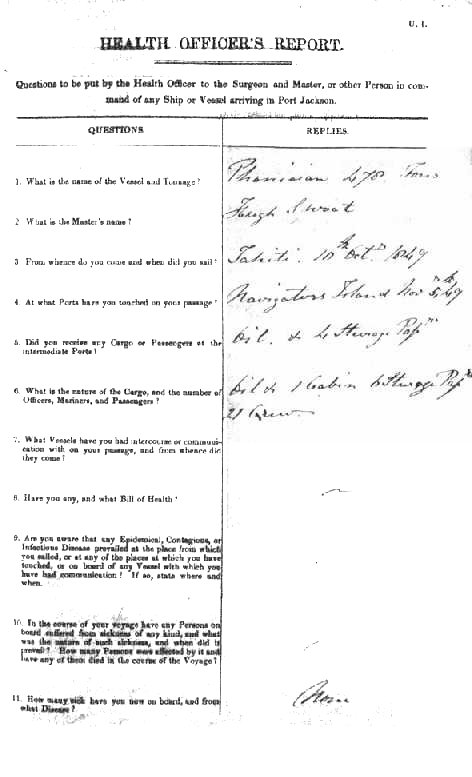 U. 1.
HEALTH OFFICER'S REPORT.
Questions to be put by the Health Officer to the Surgeon and Master, or other Person in com-
mand of any Ship or Vessel arriving in Port Jackson.
QUESTIONS.
REPLIES.
1. What is the name of the Vessel and Tonnage?
478 Tons
2. What is the Master's name?
3. From whence do you come and when did you sail?
Tahiti. 10th Octr 1849
4. At what Ports have you touched on your passage?
Navigators Island Novr 5th, 49
5. Did you receive any Cargo or Passengers at the
intermediate Ports?
Oil. & 4 Steerage
6. What is the nature of the Cargo, and the number of
Officers, Mariners, and Passengers?
Oil & 1 Cabin 6 Steerage
21 Crew
7. What Vessels have you had intercourse or communi-
cation with on your passage, and from whence did
they come?
8. Have you any, and what Bill of Health?
9. Are you aware that any Epidemical, Contagious, or
Infectious Disease prevailed at the place from which
you sailed, or at any of the places at which you have
touched, or on board of any Vessel with which you
have had communication? If so, state where and
when.
10. In the course of your voyage have any Persons on
board suffered from sickness of any kind, and what
was the nature of such sickness, and when did it
prevail? How many Persons were affected by it and
have any of them died in the course of the Voyage?
11. How many sick have you now on board, and from
what Disease?
None